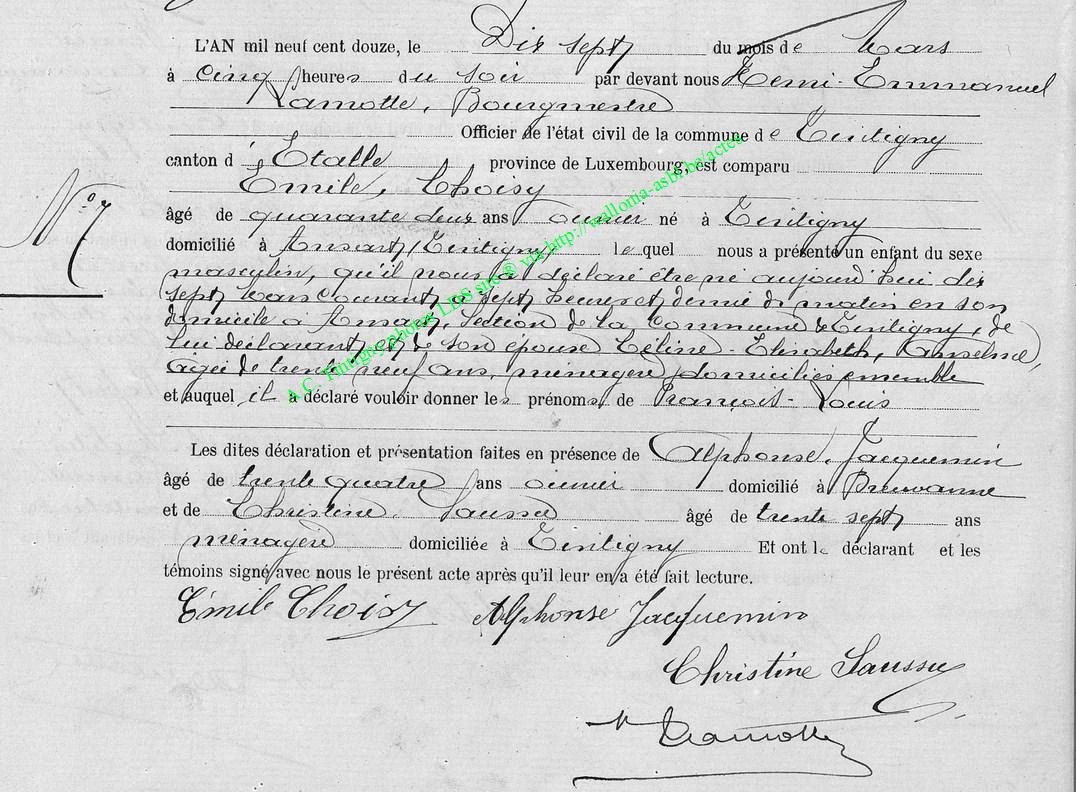 L'AN mil neuf cent douze, le Dix sept du mois de Mars
à cinq heures du soir par devant nous Remi-Emmanuel
Lamotte, Bourgmestre
Officier de l'état civil de la commune de Tintigny
canton d'Etalle province de Luxembourg, est comparu
Emile, Choisy
N° 7
âgé de quarante deux ans ouvrier né à Tintigny
domicilié à Ansart, (Tintigny) lequel nous a présenté un enfant du sexe
masculin, qu'il nous a déclaré être né aujourd'hui dix
sept Mars courant à sept heures et demie du matin en son
domicile à Ansart, Section de la Commune de Tintigny, de
lui déclarant et de son épouse Céline-Elisabeth, Anselme,
âgée de trente neuf ans, ménagère, domiciliés ensemble
et auquel il a déclaré vouloir donner les prénoms de François-Louis
Les dites déclaration et présentation faites en présence de Alphonse, Jacquemin
âgé de trente quatre ans ouvrier domicilié à Breuvanne
et de Christine Saussu âgée de trente sept ans
ménagère domiciliée à Tintigny Et ont le déclarant et les
témoins signé avec nous le présent acte après qu'il leur en a été fait lecture.
Emile Choisy Alphonse Jacquemin
Christine Saussu
Lamotte
A.C. Tintigny photos LDS site® via http://wallonia-asbl.be/actes